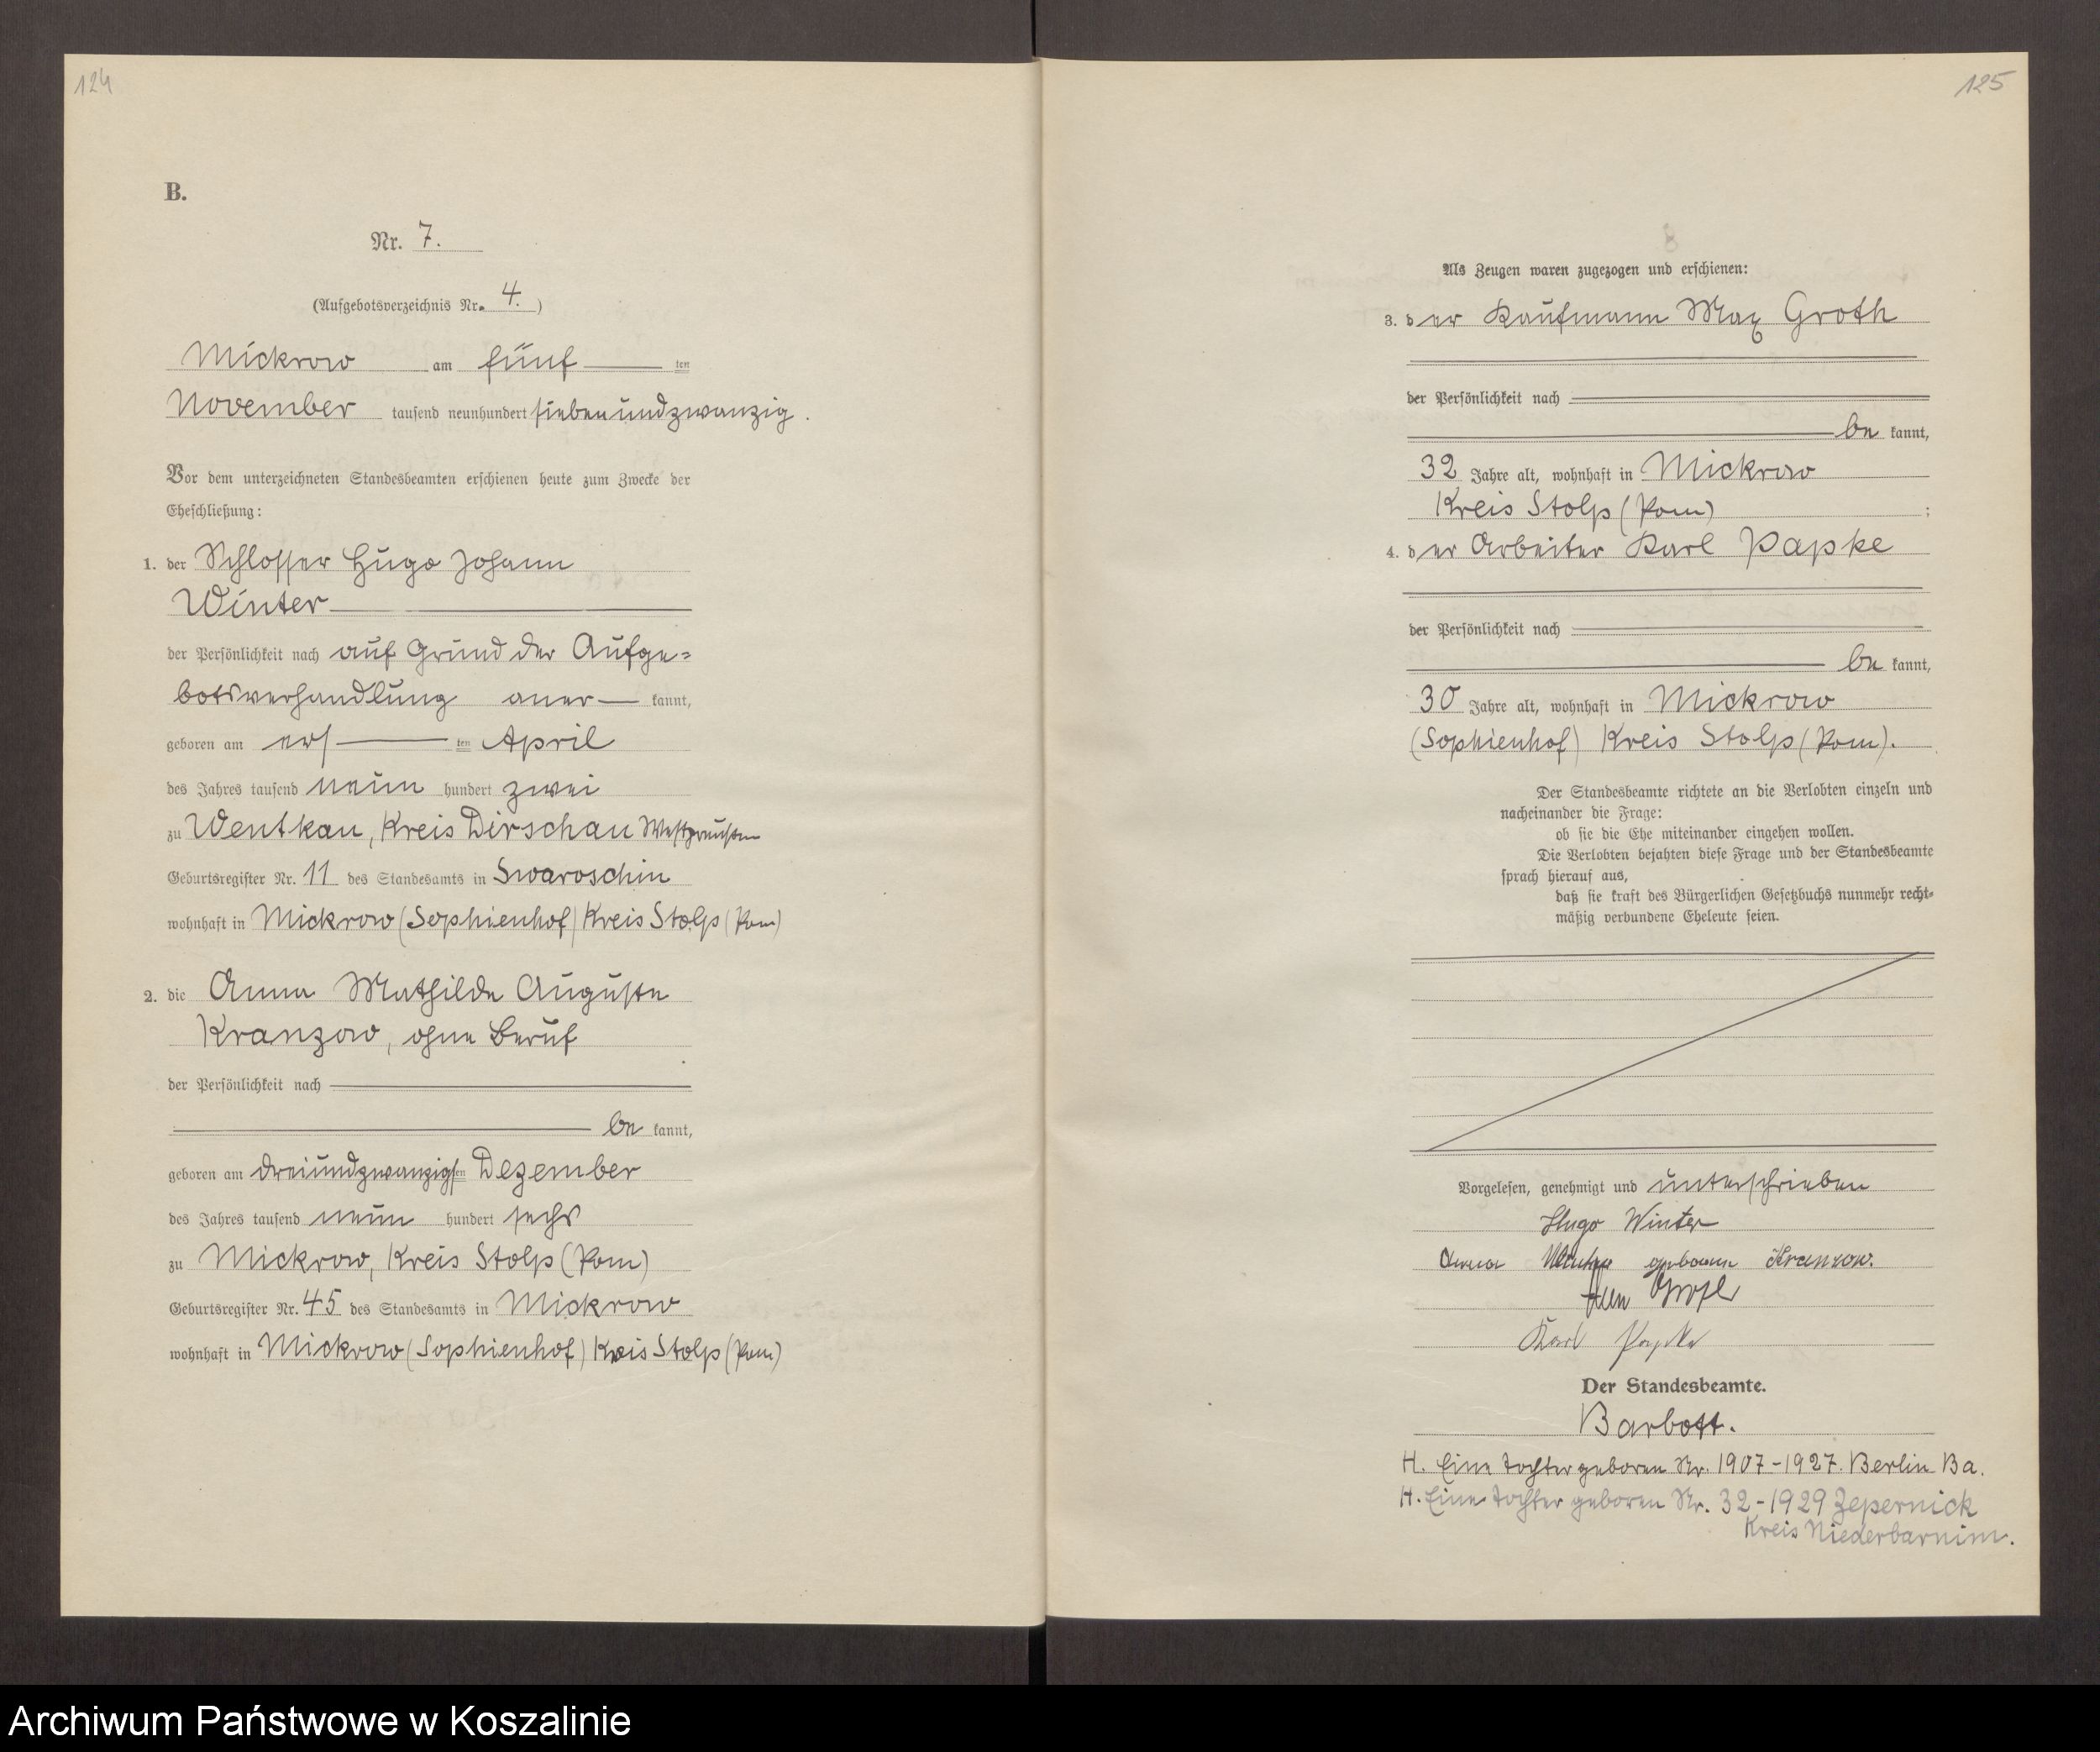 124
B.
Nr. 7.
(Aufgebotsverzeichnis Nr. 4.)
Mickrow am fünf ten
November tausend neunhundert siebenundzwanzig.
Vor dem unterzeichneten Standesbeamten erschienen heute zum Zwecke der
Eheschließung:
1. der Schlosser Hugo Johann
Winter
der Persönlichkeit nach auf Grund der Aufge=
botsverhandlung aner kannt,
geboren am ers ten April
des Jahres tausend neun hundert zwei
zu Wentkau, Kreis Dirschau Westpreußen
Geburtsregister Nr. 11 des Standesamts in Swaroschin
wohnhaft in Mickrow (Sophienhof) Kreis Stolp (Pom)
2. die Anna Mathilde Auguste
Kranzow, ohne Beruf
der Persönlichkeit nach
be kannt,
geboren am dreiundzwanzigsten Dezember
des Jahres tausend neun hundert sechs
zu Mickrow, Kreis Stolp (Pom)
Geburtsregister Nr. 45 des Standesamts in Mickrow
wohnhaft in Mickrow (Sophienhof) Kreis Stolp (Pom)
125
8
Als Zeugen waren zugezogen und erschienen:
3. der Kaufmann Max Groth
der Persönlichkeit nach
be kannt,
32 Jahre alt, wohnhaft in Mickrow
Kreis Stolp (Pom) ;
4. der Arbeiter Karl Papke
der Persönlichkeit nach
be kannt,
30 Jahre alt, wohnhaft in Mickrow
(Sophienhof) Kreis Stolp (Pom).
Der Standesbeamte richtete an die Verlobten einzeln und
nacheinander die Frage:
ob sie die Ehe miteinander eingehen wollen.
Die Verlobten bejahten diese Frage und der Standesbeamte
sprach hierauf aus,
daß sie kraft des Bürgerlichen Gesetzbuchs nunmehr recht=
mäßig verbundene Eheleute seien.
Vorgelesen, genehmigt und unterschrieben
Hugo Winter
Anna Winter geborene Kranzow.
Karl Papke
Der Standesbeamte.
Barbott.
H. Eine Tochter geboren Nr. 1907-1927. Berlin Ba.
H. Eine Tochter geboren Nr. 32-1929 Zepernick
Kreis Niederbarnim.
Archiwum Państwowe w Koszalinie